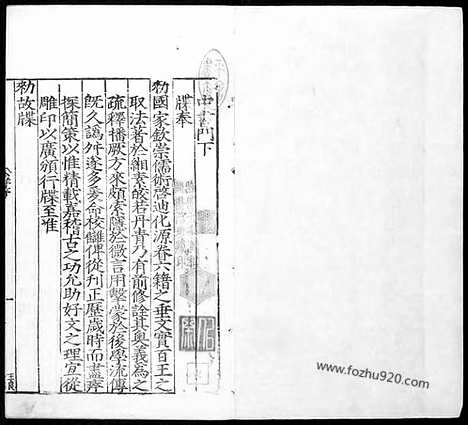 中書門下
牒奉
勑國家欽崇儒術啓迪化源眷六籍之垂文實百王之
取法著於緗素皎若丹青乃有前修詮其奧義爲之
疏釋播厥方來頗索隱於微言用擊蒙於後學流傳
既久譌舛遂多爰命校讎俾從刊正歷歲時而盡瘁
探簡策以惟精載嘉稽古之功允助好文之理宜從
雕印以廣頒行牒至准
勑故牒
www.fozhu920.com